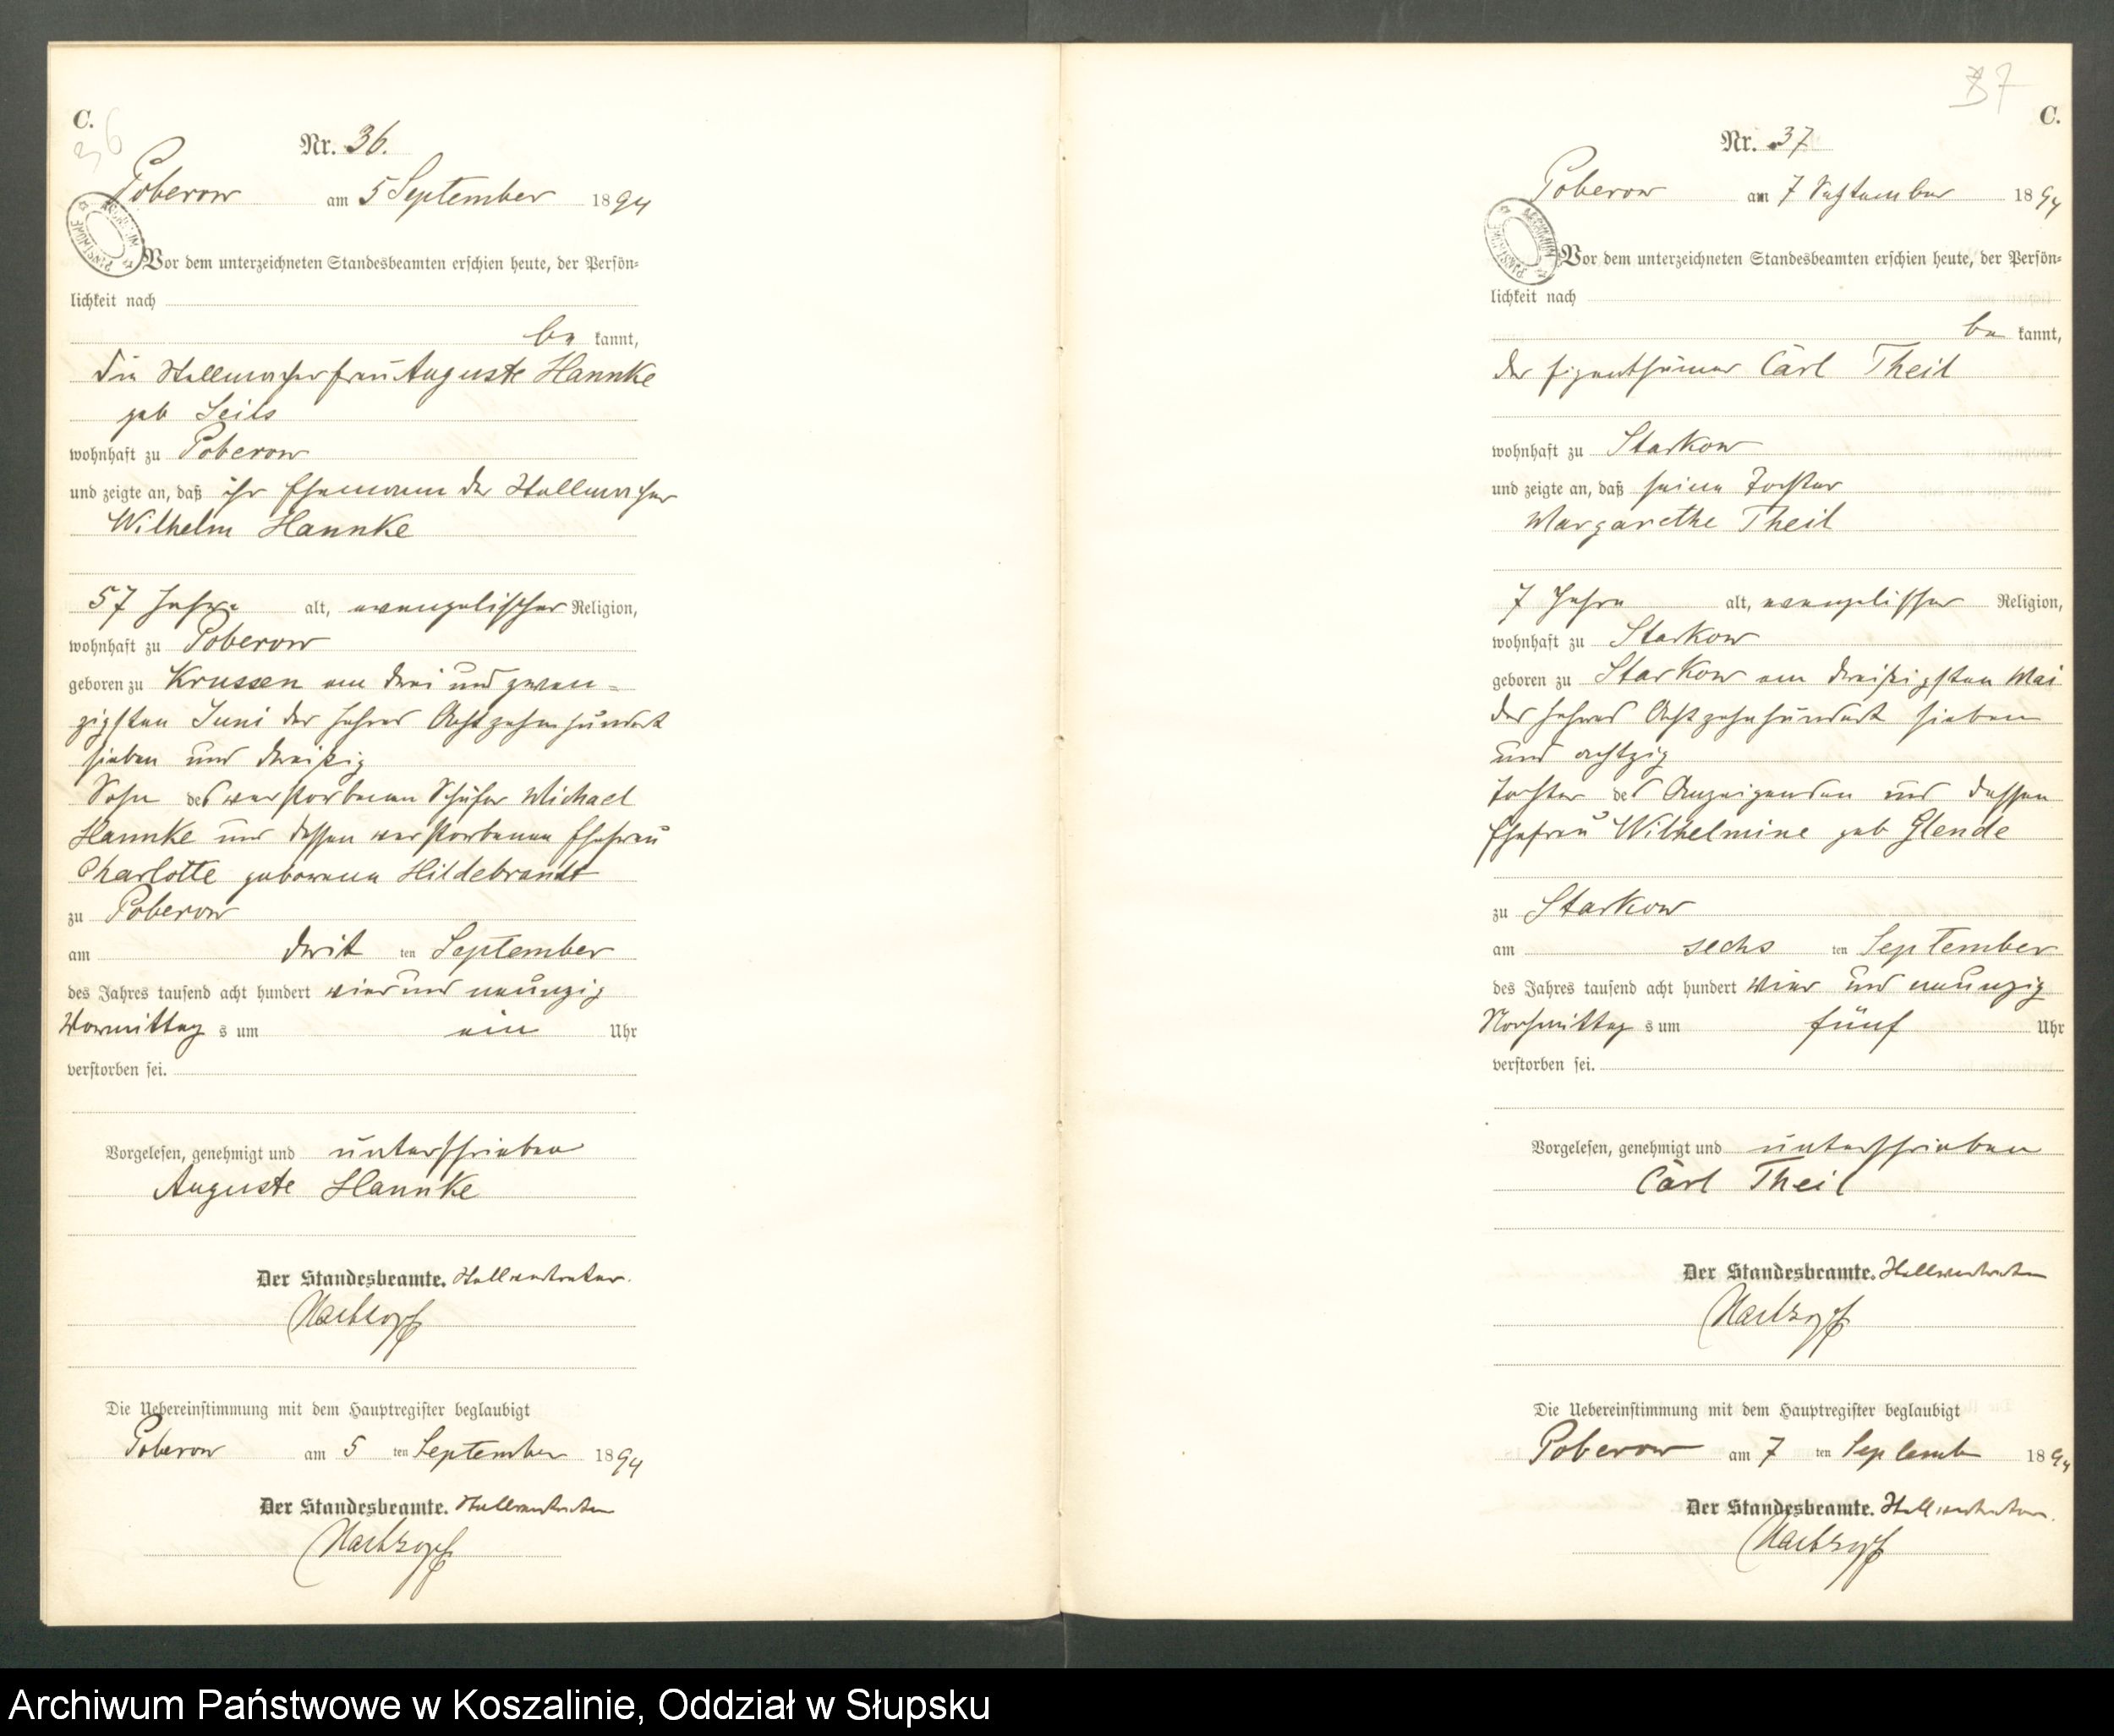 C.
36
Nr. 36.
Poberow am 5 September 1894
Vor dem unterzeichneten Standesbeamten erschien heute, der Persön-
lichkeit nach
be kannt,
die Stellmacherfrau Auguste Hannke
geb Seils
wohnhaft zu Poberow
und zeigte an, daß ihr Ehemann der Stellmacher
Wilhelm Hannke
57 Jahre alt, evangelischer Religion,
wohnhaft zu Poberow
geboren zu Krussen am drei und zwan-
zigsten Juni des Jahres Achtzehnhundert
sieben und dreißig
Sohn des verstorbenen Schäfer Michael
Hannke und dessen verstorbenen Ehefrau
Charlotte geborenen Hildebrandt
zu Poberow
am dritt ten September
des Jahres tausend acht hundert vier und neunzig
Vormittag s um ein Uhr
verstorben sei.
Vorgelesen, genehmigt und unterschrieben
Auguste Hannke
Der Standesbeamte. Stellvertreter.
Die Uebereinstimmung mit dem Hauptregister beglaubigt
Poberow am 5 ten September 1894
Der Standesbeamte. Stellvertreter
37
C.
Nr. 37
Poberow am 7 September 1894
Vor dem unterzeichneten Standesbeamten erschien heute, der Persön-
lichkeit nach
be kannt,
der Eigenthümer Carl Theil
wohnhaft zu Starkow
und zeigte an, daß seine Tochter
Margarethe Theil
7 Jahre alt, evangelischer Religion,
wohnhaft zu Starkow
geboren zu Starkow am dreißigsten Mai
des Jahres Achtzehnhundert sieben
und achtzig
Tochter des Anzeigenden und dessen
Ehefrau Wilhelmine geb Glende
zu Starkow
am sechs ten September
des Jahres tausend acht hundert vier und neunzig
Nachmittag s um fünf Uhr
verstorben sei.
Vorgelesen, genehmigt und unterschrieben
Carl Theil
Der Standesbeamte. Stellvertreter
Die Uebereinstimmung mit dem Hauptregister beglaubigt
Poberow am 7 ten Septemb 1894
Der Standesbeamte. Stellvertreter.
Archiwum Państwowe w Koszalinie, Oddział w Słupsku